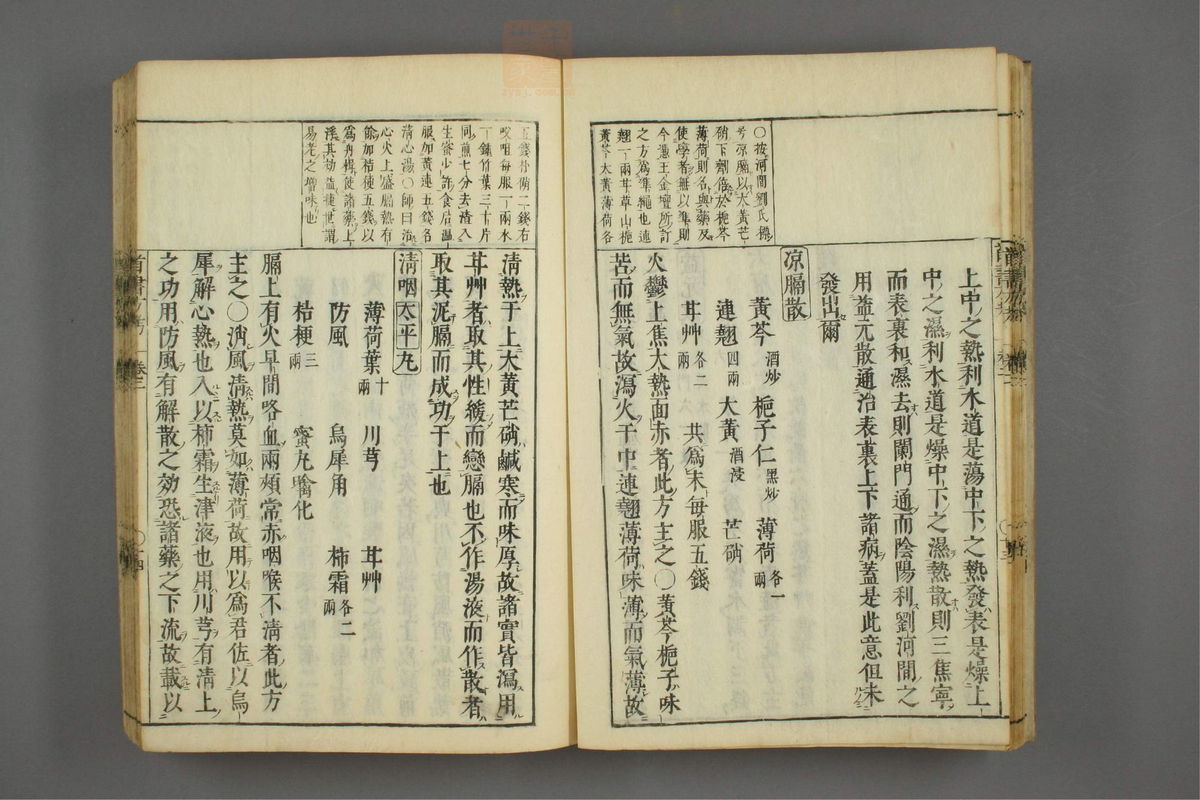 上中之熱利水道是蕩中下之熱發表是燥上
中之濕利水道是燥中下之濕熱散則三焦寧
而表裏和濕去則闌門通而陰陽利劉河間之
用益元散通治表裏上下諸病蓋是此意但未
發出爾
凉膈散
黃芩酒炒 梔子仁黑炒 薄荷各一兩
連翹四兩 大黃酒浸 芒硝
甘艸各二兩 共爲末每服五錢
火鬱上焦大熱面赤者此方主之○黃芩梔子味
苦而無氣故瀉火于中連翹薄荷味薄而氣薄故
○按河間劉氏
兮凉膈以大黃芒
硝下劑倍於梔芩
薄荷則名與藥及
使學者無以準則
今憑王金壇所訂
之方爲準繩也連
翹一兩甘草山梔
黃芩大黃薄荷各
五錢朴硝二錢右
㕮咀每服一兩水
一鍾竹葉三十片
同煎七分去渣入
生蜜少許食后溫
服如黃連五錢名
清心湯○師曰治
心火上盛膈熱有
餘加桔梗五錢以
爲舟楫使諸藥上
溪其劫益捷世謂
易老之增味也
清熱于上大黃芒硝鹹寒而味厚故諸實皆瀉用
甘艸者取其性緩而戀膈也不作湯液而作散者
取其泥膈而成功于上也
清咽太平丸
薄荷葉十兩 川芎 甘艸
防風 烏犀角 柿霜各二兩
桔梗三兩 蜜丸噙化
膈上有火早間咯血兩頰常赤咽喉不清者此方
主之○消風清熱莫如薄荷故用以爲君佐以烏
犀解心熱也入以柿霜生津液也用川芎有清上
之功用防風有解散之効恐諸藥之下流故載以